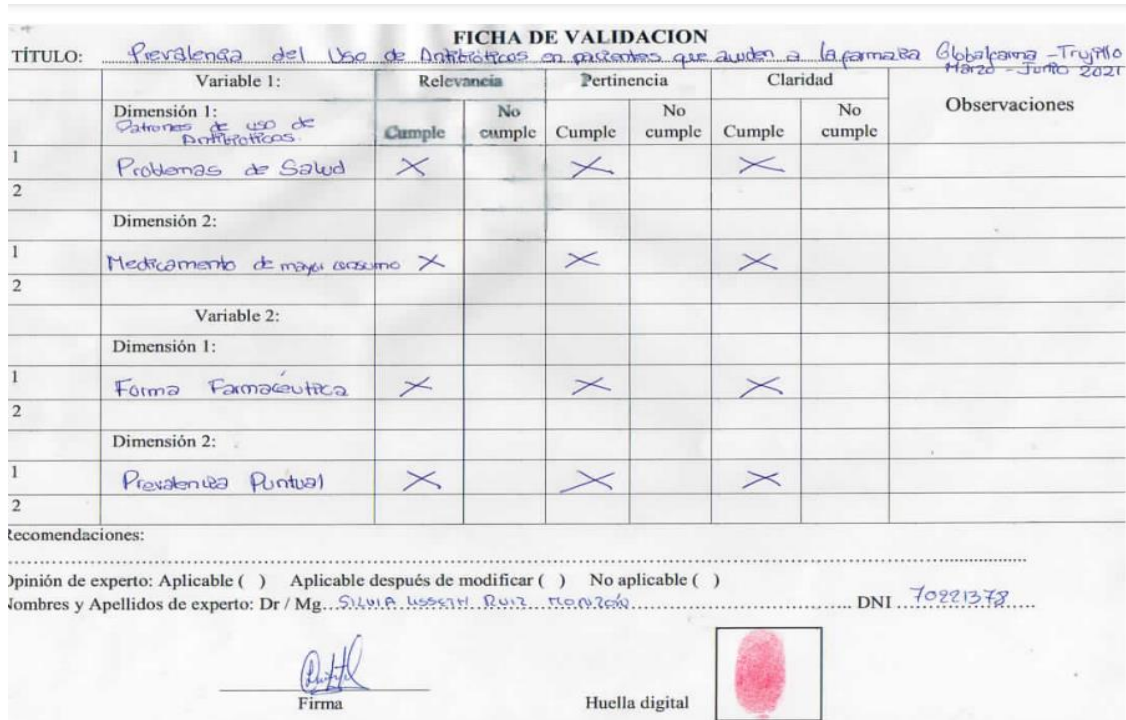 FICHA DE VALIDACION
TÍTULO: Prevalencia del Uso de Antibióticos en pacientes que acuden a la farmacia Globalcarma - Trujillo
Marzo - Junio 2021
Variable 1: Relevancia Pertinencia Claridad Observaciones
Dimensión 1: Patrones de uso de Antibioticos. Cumple No cumple Cumple No cumple Cumple No cumple
1 Problemas de Salud X X X
2
Dimensión 2:
1 Medicamento de mayor consumo X X X
2
Variable 2:
Dimensión 1:
1 Forma Farmacéutica X X X
2
Dimensión 2:
1 Prevalencia Puntual X X X
2
Recomendaciones:
Opinión de experto: Aplicable ( ) Aplicable después de modificar ( ) No aplicable ( )
Nombres y Apellidos de experto: Dr / Mg. SILVIA LISSETH RUIZ MONZÓN DNI 70221378
Firma Huella digital